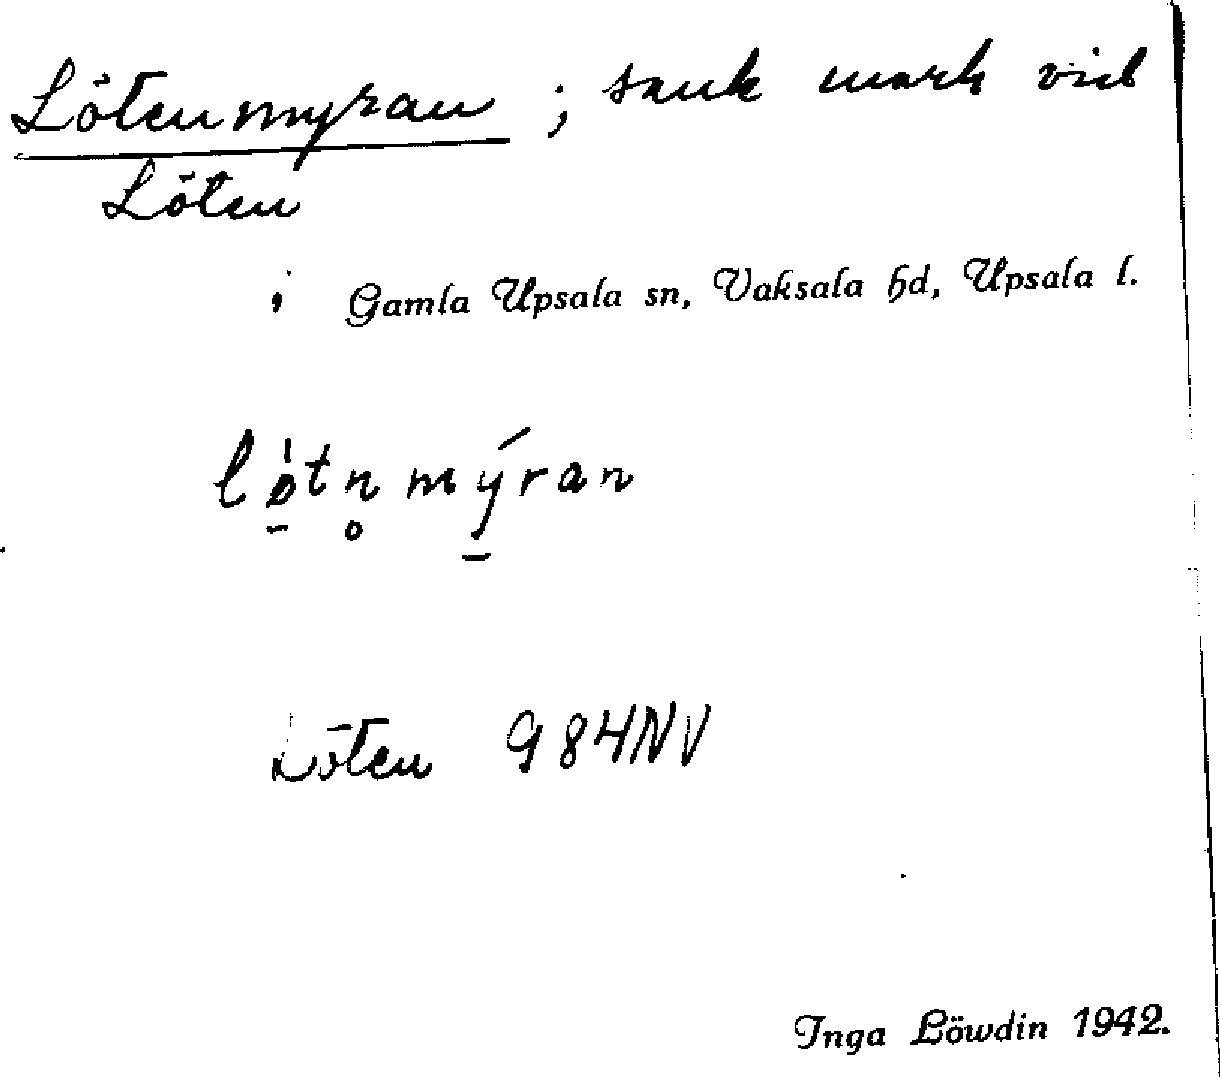 Lötenmyran ; sank mark vid
Löten
i Gamla Upsala sn, Vaksala hd, Upsala l.
lø̠̀tn̥mý̠ran
Löten 984NV
Inga Löwdin 1942.